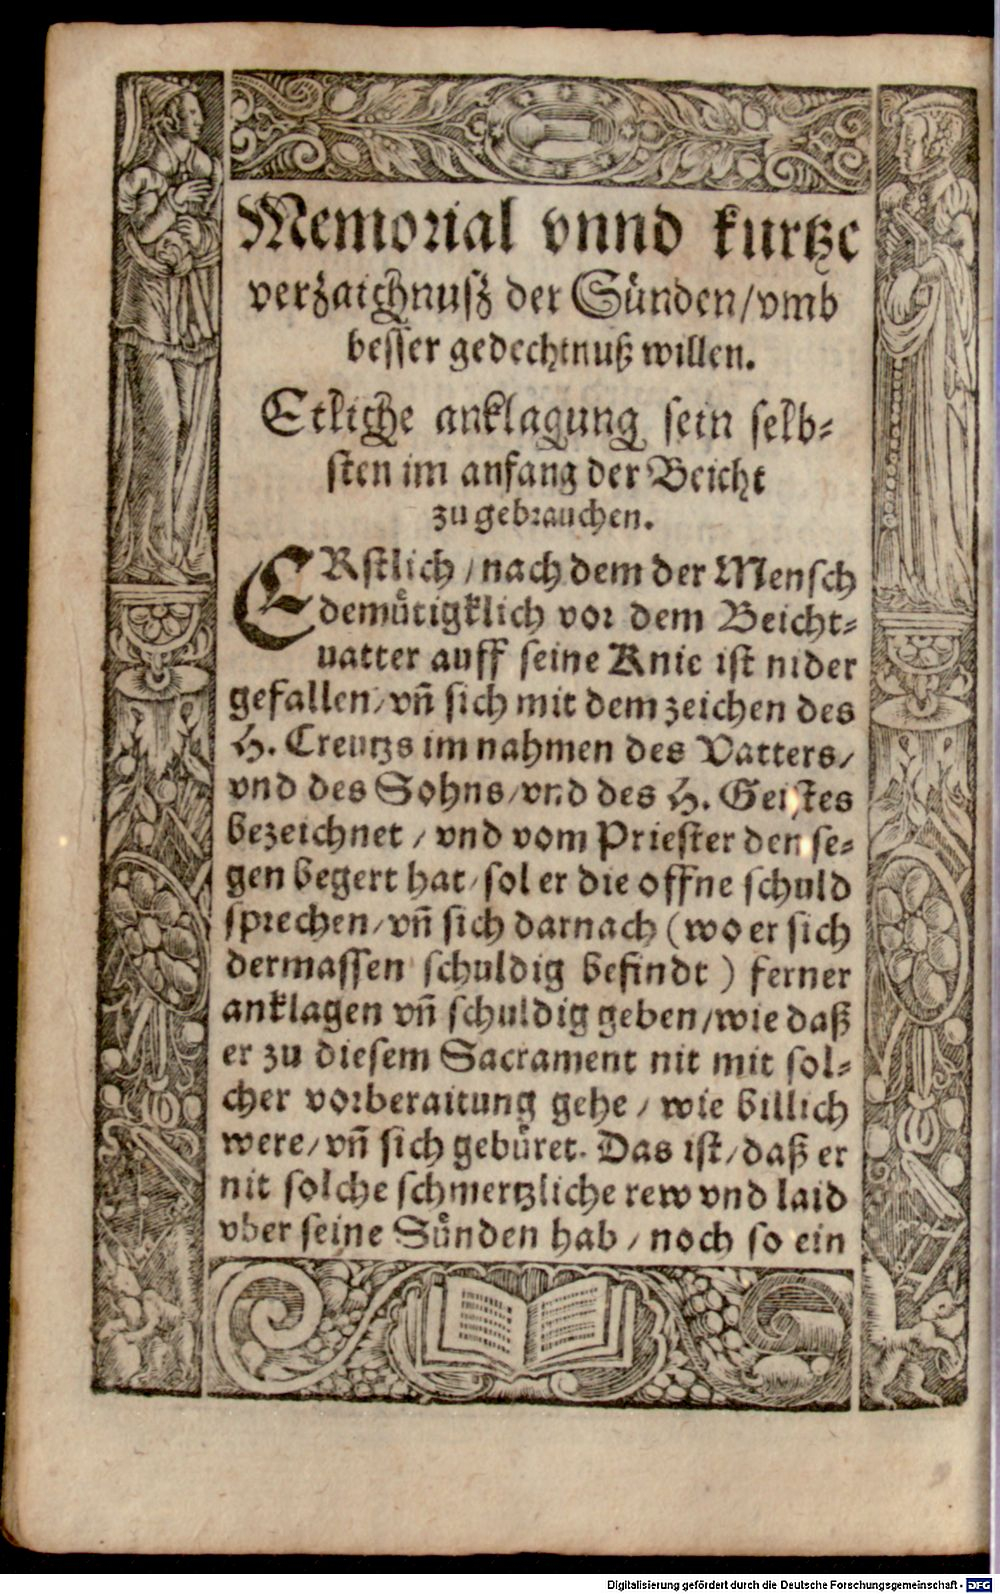 Memorial vnnd kurtze
verzaichnusz der Sünden/vmb
besser gedechtnuß willen.
Etliche anklagung sein selb-
sten im anfang der Beicht
zu gebrauchen.
ERstlich/nach dem der Mensch
demütigklich vor dem Beicht-
uatter auff seine Knie ist nider
gefallen/vñ sich mit dem zeichen des
H. Creutzs im nahmen des Vatters/
vnd des Sohns/vnd des H. Geistes
bezeichnet/vnd vom Priester den se-
gen begert hat/sol er die offne schuld
sprechen/vñ sich darnach (wo er sich
dermassen schuldig befindt) ferner
anklagen vñ schuldig geben/wie daß
er zu diesem Sacrament nit mit sol-
cher vorberaitung gehe/wie billich
were/vñ sich gebüret. Das ist/daß er
nit solche schmertzliche rew vnd laid
vber seine Sünden hab/noch so ein
Digitalisierung gefördert durch die Deutsche Forschungsgemeinschaft - DFG